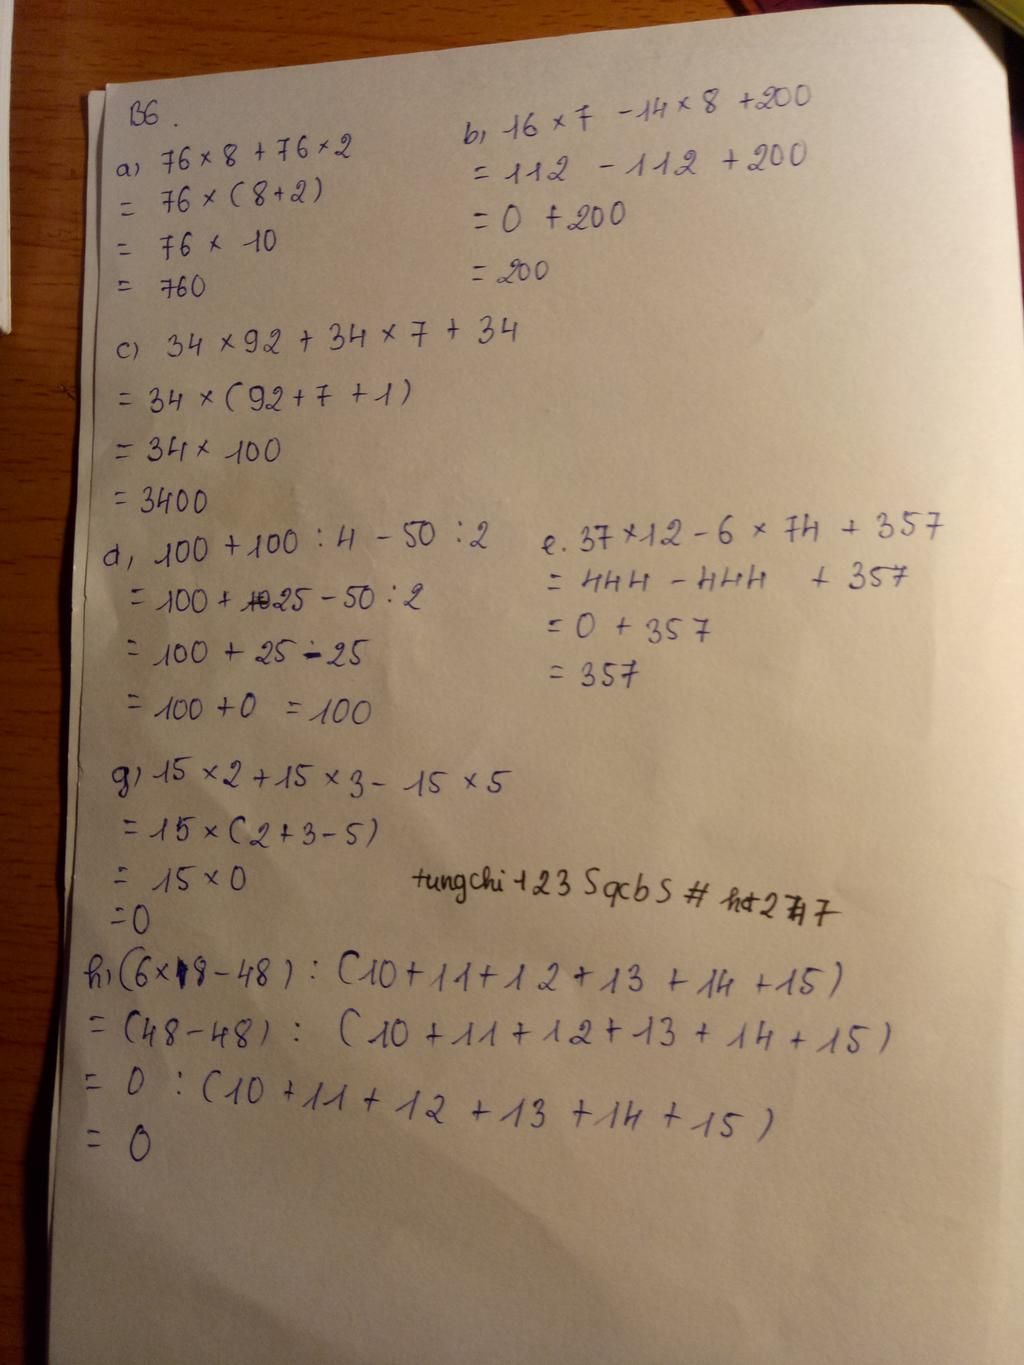 B6.
a) 76 × 8 + 76 × 2
= 76 × (8+2)
= 76 × 10
= 760
b, 16 × 7 - 14 × 8 + 200
= 112 - 112 + 200
= 0 + 200
= 200
c) 34 × 92 + 34 × 7 + 34
= 34 × (92 + 7 + 1)
= 34 × 100
= 3400
d, 100 + 100 : 4 - 50 : 2
= 100 + 25 - 50 : 2
= 100 + 25 - 25
= 100 + 0 = 100
e. 37 × 12 - 6 × 74 + 357
= 444 - 444 + 357
= 0 + 357
= 357
g) 15 × 2 + 15 × 3 - 15 × 5
= 15 × (2 + 3 - 5)
= 15 × 0
= 0
tungchi123
h, (6 × 8 - 48) : (10 + 11 + 12 + 13 + 14 + 15)
= (48 - 48) : (10 + 11 + 12 + 13 + 14 + 15)
= 0 : (10 + 11 + 12 + 13 + 14 + 15)
= 0